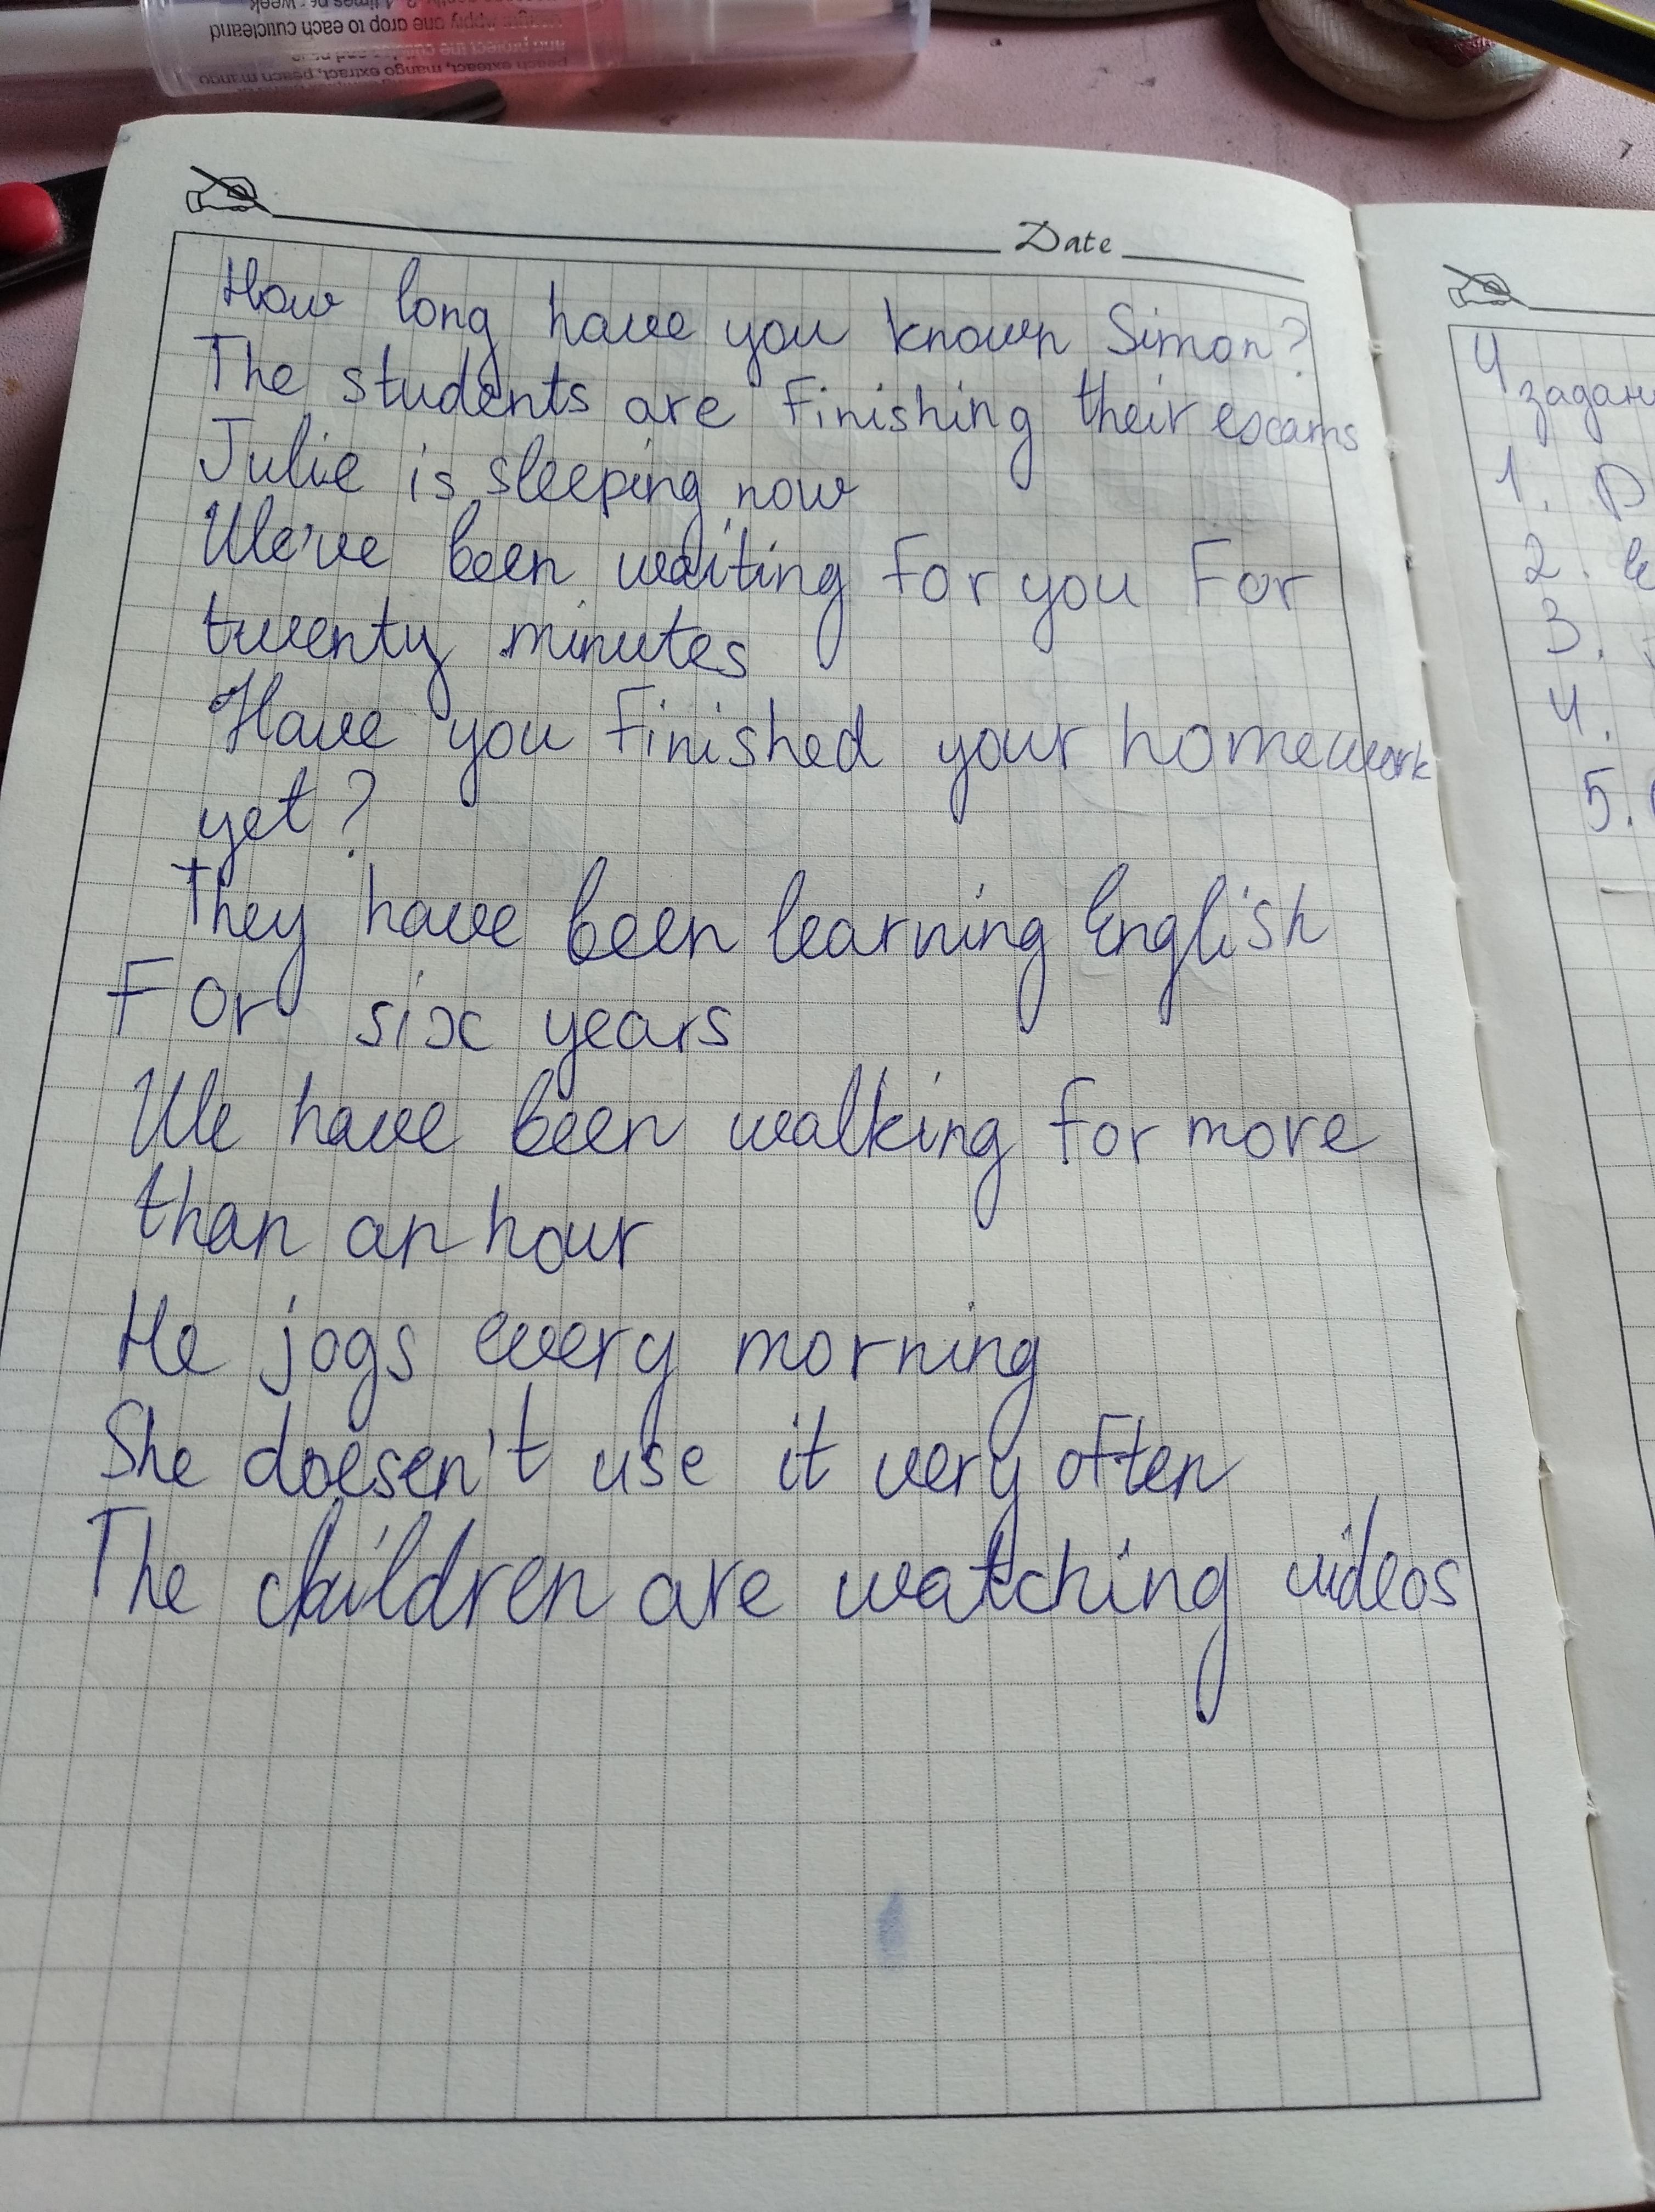 peach extract, mango extract, peach mango
drop to each cuticle and
Date
How long have you known Simon?
The students are finishing their exams
Julie is sleeping now
We've been waiting for you for
twenty minutes
Have you finished your homework
yet?
They have been learning English
For six years
We have been walking for more
than an hour
He jogs every morning
She doesen't use it very often
The children are watching videos
4
1.
2.
3.
4.
5.